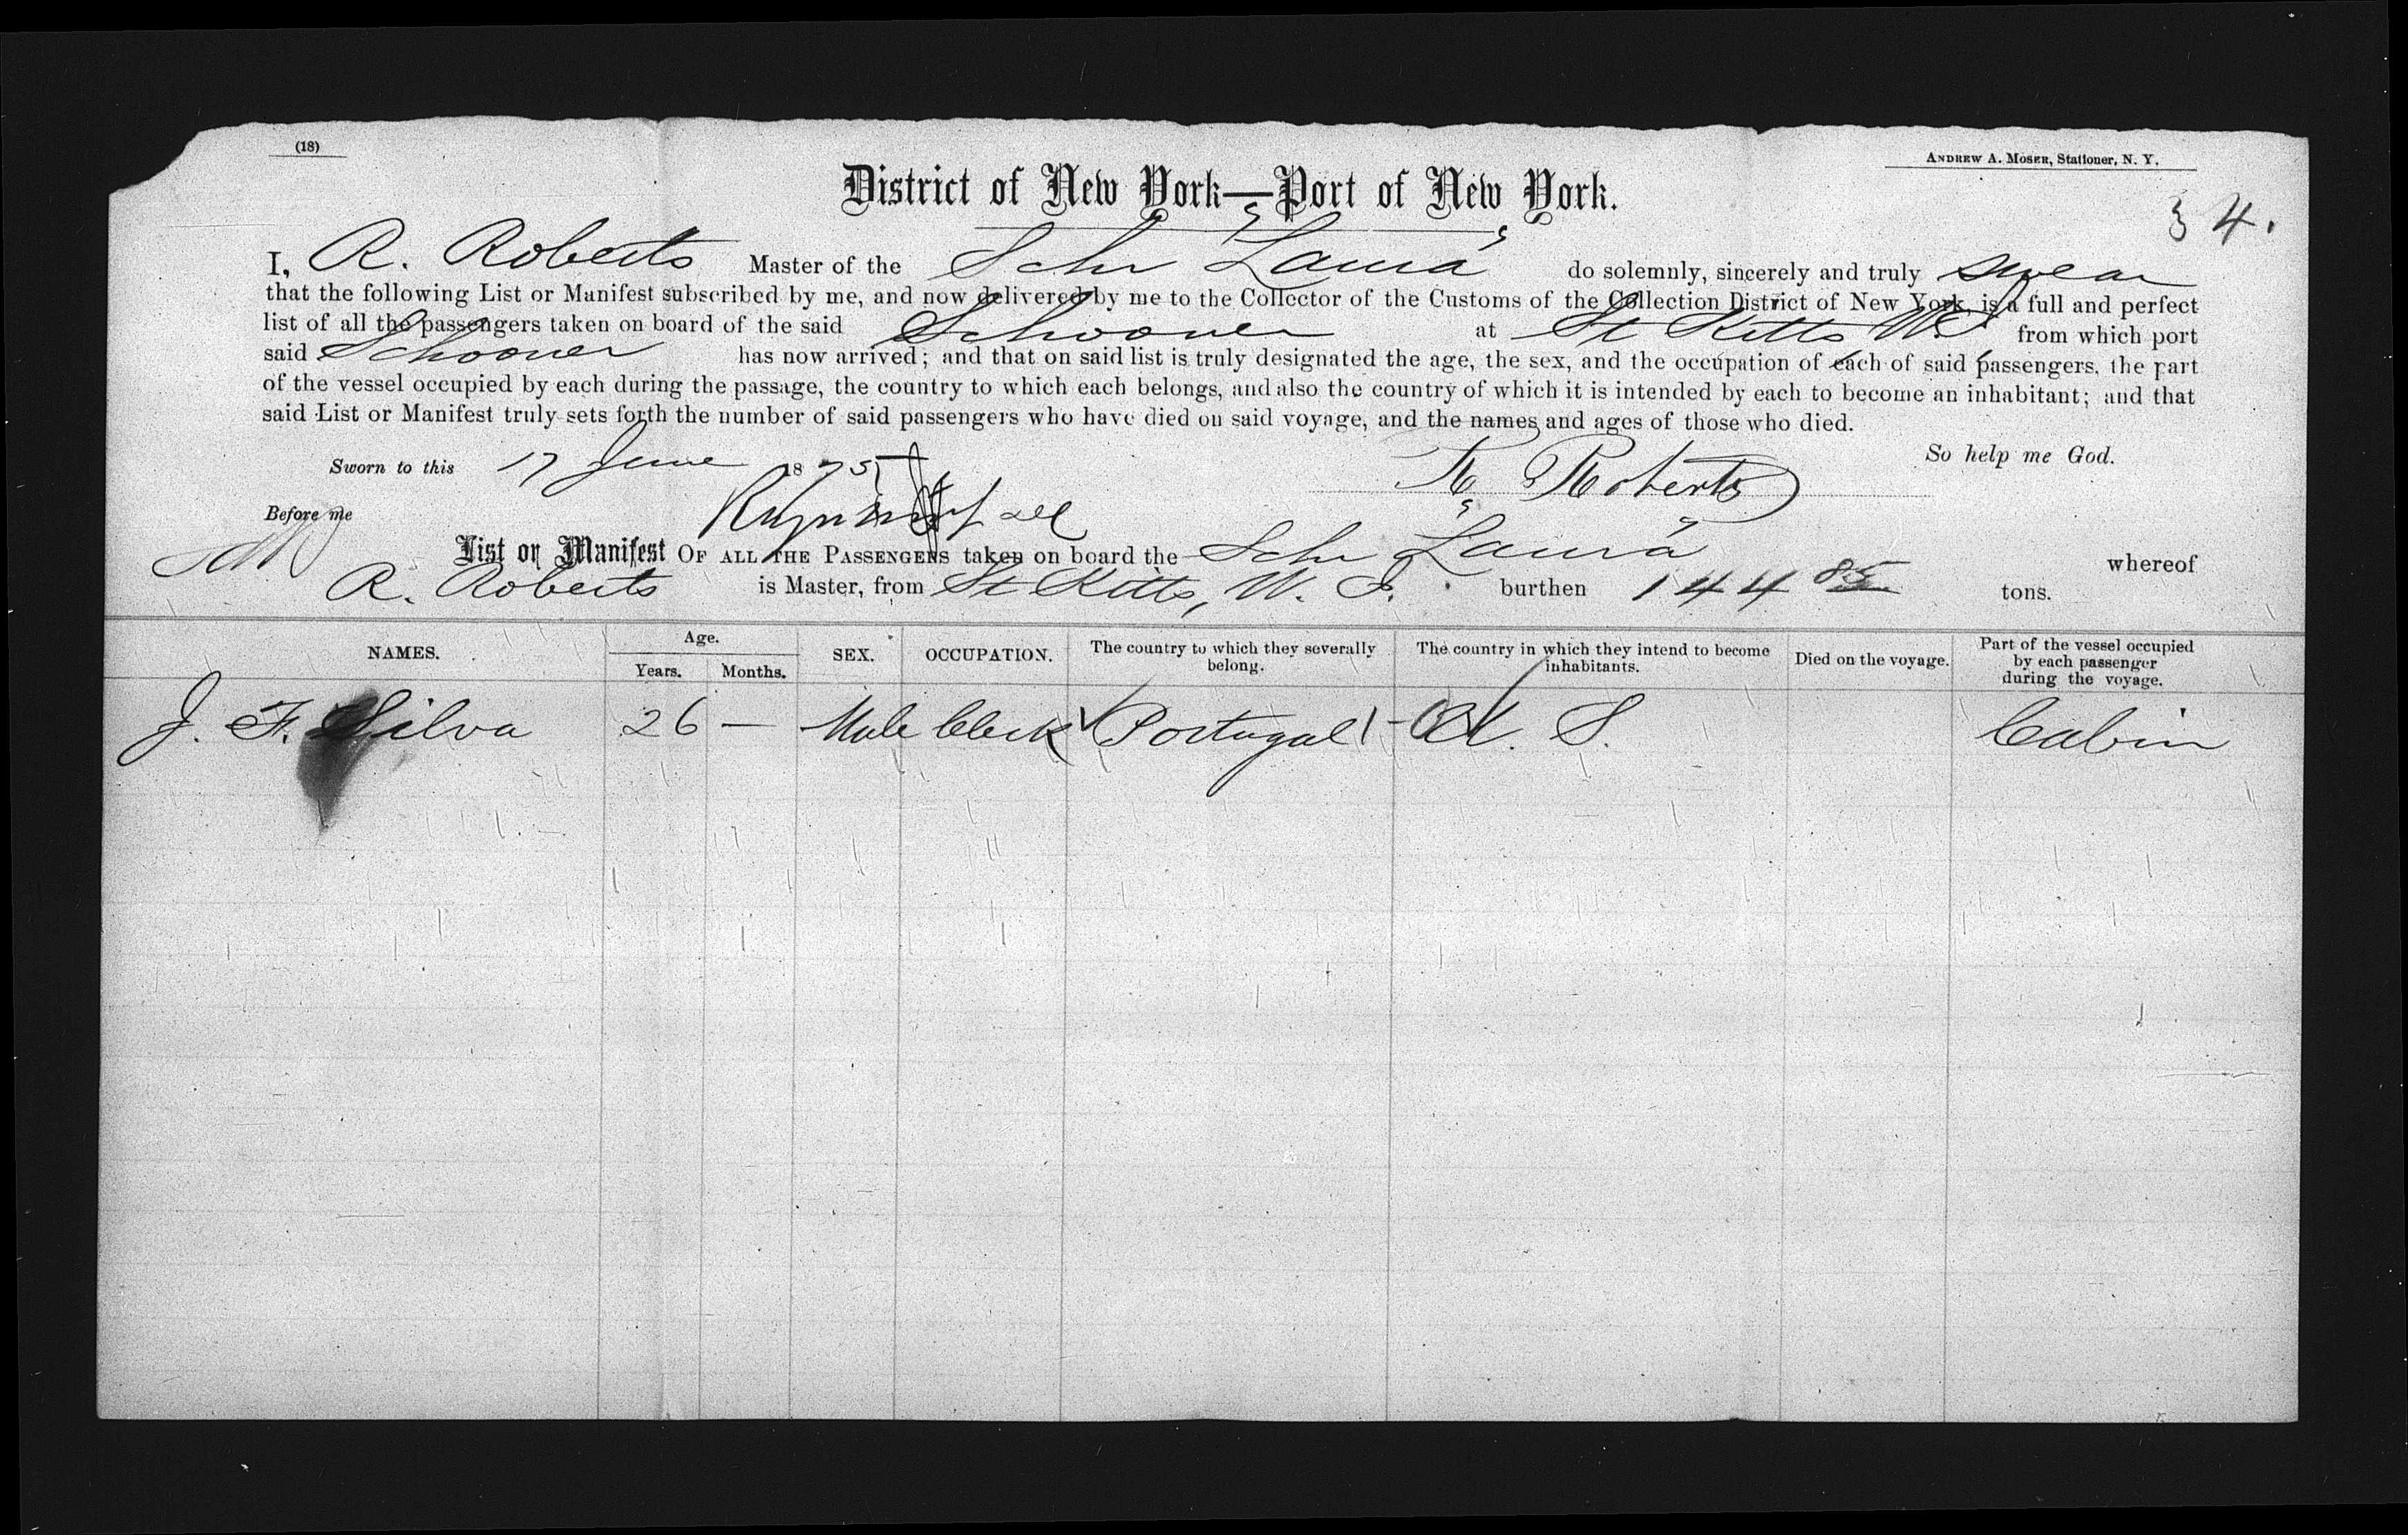 (18)
ANDREW A. MOSER, Stationer, N. Y.
District of New York—Port of New York.
4.
I, R. Roberts Master of the Schr "Laura" do solemnly, sincerely and truly swear
that the following List or Manifest subscribed by me, and now delivered by me to the Collector of the Customs of the Collection District of New York, is a full and perfect
list of all the passengers taken on board of the said Schooner at St Kitts W.I from which port
said Schooner has now arrived; and that on said list is truly designated the age, the sex, and the occupation of each of said passengers, the part
of the vessel occupied by each during the passage, the country to which each belongs, and also the country of which it is intended by each to become an inhabitant; and that
said List or Manifest truly sets forth the number of said passengers who have died on said voyage, and the names and ages of those who died.
So help me God.
Sworn to this 17 June 1875 R. Roberts
Before me
List or Manifest OF ALL THE PASSENGERS taken on board the Schr "Laura" whereof
R. Roberts is Master, from St Kitts, W. I. burthen 144 85 tons.
NAMES. Age. Years. Months. SEX. OCCUPATION. The country to which they severally belong. The country in which they intend to become inhabitants. Died on the voyage. Part of the vessel occupied by each passenger during the voyage.
J. F. Silva 26 — Male Clerk Portugal U. S. Cabin